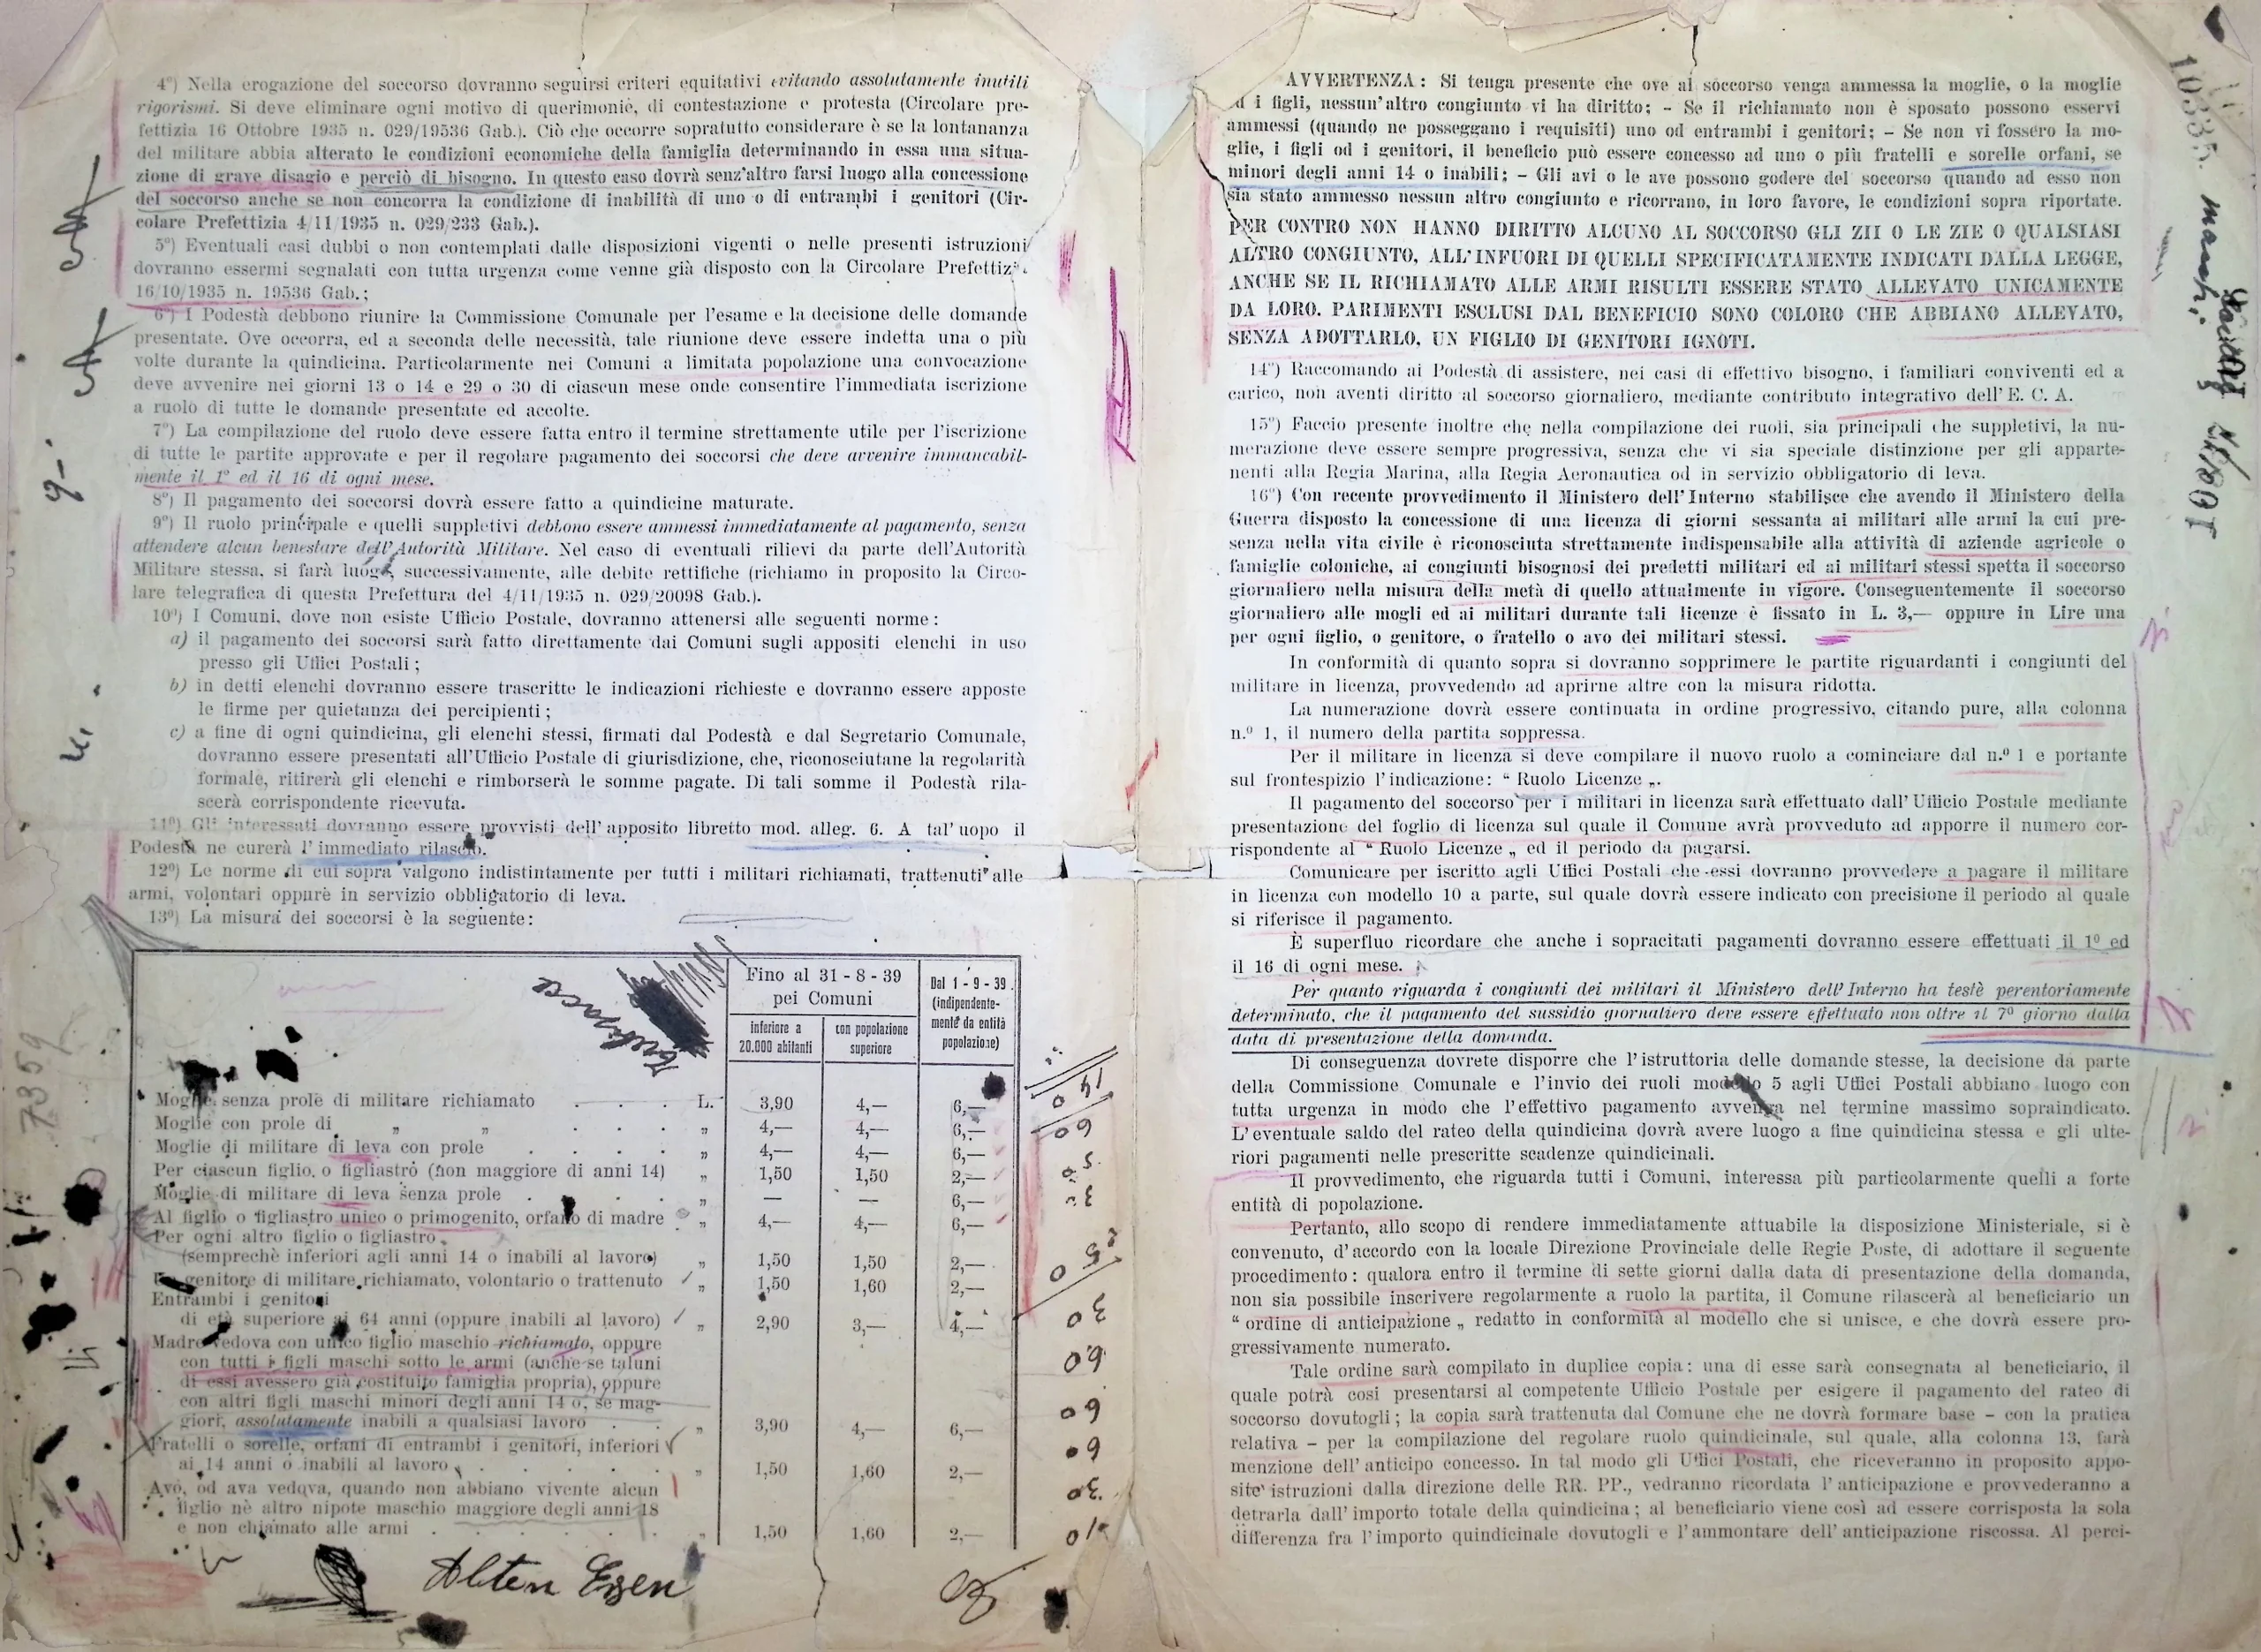 4°) Nella erogazione del soccorso dovranno seguirsi criteri equitativi evitando assolutamente inutili
rigorismi. Si deve eliminare ogni motivo di querimonie, di contestazione e protesta (Circolare pre-
fettizia 16 Ottobre 1935 n. 029/19536 Gab.). Ciò che occorre sopratutto considerare è se la lontananza
del militare abbia alterato le condizioni economiche della famiglia determinando in essa una situa-
zione di grave disagio e perciò di bisogno. In questo caso dovrà senz'altro farsi luogo alla concessione
del soccorso anche se non concorra la condizione di inabilità di uno o di entrambi i genitori (Cir-
colare Prefettizia 4/11/1935 n. 029/233 Gab.).
5°) Eventuali casi dubbi o non contemplati dalle disposizioni vigenti o nelle presenti istruzioni
dovranno essermi segnalati con tutta urgenza come venne già disposto con la Circolare Prefettiz.
16/10/1935 n. 19536 Gab.;
6°) I Podestà debbono riunire la Commissione Comunale per l'esame e la decisione delle domande
presentate. Ove occorra, ed a seconda delle necessità, tale riunione deve essere indetta una o più
volte durante la quindicina. Particolarmente nei Comuni a limitata popolazione una convocazione
deve avvenire nei giorni 13 o 14 e 29 o 30 di ciascun mese onde consentire l'immediata iscrizione
a ruolo di tutte le domande presentate ed accolte.
7°) La compilazione del ruolo deve essere fatta entro il termine strettamente utile per l'iscrizione
di tutte le partite approvate e per il regolare pagamento dei soccorsi che deve avvenire immancabil-
mente il 1° ed il 16 di ogni mese.
8°) Il pagamento dei soccorsi dovrà essere fatto a quindicine maturate.
9°) Il ruolo principale e quelli suppletivi debbono essere ammessi immediatamente al pagamento, senza
attendere alcun benestare dell'Autorità Militare. Nel caso di eventuali rilievi da parte dell'Autorità
Militare stessa, si farà luogo, successivamente, alle debite rettifiche (richiamo in proposito la Circo-
lare telegrafica di questa Prefettura del 4/11/1935 n. 029/20098 Gab.).
10°) I Comuni, dove non esiste Ufficio Postale, dovranno attenersi alle seguenti norme:
a) il pagamento dei soccorsi sarà fatto direttamente dai Comuni sugli appositi elenchi in uso
presso gli Uffici Postali;
b) in detti elenchi dovranno essere trascritte le indicazioni richieste e dovranno essere apposte
le firme per quietanza dei percipienti;
c) a fine di ogni quindicina, gli elenchi stessi, firmati dal Podestà e dal Segretario Comunale,
dovranno essere presentati all'Ufficio Postale di giurisdizione, che, riconosciutane la regolarità
formale, ritirerà gli elenchi e rimborserà le somme pagate. Di tali somme il Podestà rila-
scerà corrispondente ricevuta.
11°) Gli interessati dovranno essere provvisti dell'apposito libretto mod. alleg. 6. A tal'uopo il
Podestà ne curerà l'immediato rilascio.
12°) Le norme di cui sopra valgono indistintamente per tutti i militari richiamati, trattenuti alle
armi, volontari oppure in servizio obbligatorio di leva.
13°) La misura dei soccorsi è la seguente:
Fino al 31-8-39 pei Comuni
inferiore a 20.000 abitanti
con popolazione superiore
Dal 1-9-39 (indipendente-mente da entità popolazione)
Moglie senza prole di militare richiamato . . . L. 3,90 4,— 6,—
Moglie con prole di „ „ . . . „ 4,— 4,— 6,—
Moglie di militare di leva con prole . . . . „ 4,— 4,— 6,—
Per ciascun figlio o figliastro (non maggiore di anni 14) „ 1,50 1,50 2,—
Moglie di militare di leva senza prole . . . . „ — — 6,—
Al figlio o figliastro unico o primogenito, orfano di madre „ 4,— 4,— 6,—
Per ogni altro figlio o figliastro
(semprechè inferiori agli anni 14 o inabili al lavoro) „ 1,50 1,50 2,—
genitore di militare richiamato, volontario o trattenuto „ 1,50 1,60 2,—
Entrambi i genitori
di età superiore ai 64 anni (oppure inabili al lavoro) „ 2,90 3,— 4,—
Madre vedova con unico figlio maschio richiamato, oppure
con tutti i figli maschi sotto le armi (anche se taluni
di essi avessero già costituito famiglia propria), oppure
con altri figli maschi minori degli anni 14 o, se mag-
giori, assolutamente inabili a qualsiasi lavoro . . „ 3,90 4,— 6,—
Fratelli o sorelle, orfani di entrambi i genitori, inferiori
ai 14 anni o inabili al lavoro . . . . . „ 1,50 1,60 2,—
Avo, od ava vedova, quando non abbiano vivente alcun
figlio nè altro nipote maschio maggiore degli anni 18
e non chiamato alle armi . . . . . . „ 1,50 1,60 2,—
Alten Essen
7359
AVVERTENZA: Si tenga presente che ove al soccorso venga ammessa la moglie, o la moglie
d i figli, nessun'altro congiunto vi ha diritto; - Se il richiamato non è sposato possono esservi
ammessi (quando ne posseggano i requisiti) uno od entrambi i genitori; - Se non vi fossero la mo-
glie, i figli od i genitori, il beneficio può essere concesso ad uno o più fratelli e sorelle orfani, se
minori degli anni 14 o inabili; - Gli avi o le ave possono godere del soccorso quando ad esso non
sia stato ammesso nessun altro congiunto e ricorrano, in loro favore, le condizioni sopra riportate.
PER CONTRO NON HANNO DIRITTO ALCUNO AL SOCCORSO GLI ZII O LE ZIE O QUALSIASI
ALTRO CONGIUNTO, ALL'INFUORI DI QUELLI SPECIFICATAMENTE INDICATI DALLA LEGGE,
ANCHE SE IL RICHIAMATO ALLE ARMI RISULTI ESSERE STATO ALLEVATO UNICAMENTE
DA LORO. PARIMENTI ESCLUSI DAL BENEFICIO SONO COLORO CHE ABBIANO ALLEVATO,
SENZA ADOTTARLO, UN FIGLIO DI GENITORI IGNOTI.
14°) Raccomando ai Podestà di assistere, nei casi di effettivo bisogno, i familiari conviventi ed a
carico, non aventi diritto al soccorso giornaliero, mediante contributo integrativo dell'E. C. A.
15°) Faccio presente inoltre che nella compilazione dei ruoli, sia principali che suppletivi, la nu-
merazione deve essere sempre progressiva, senza che vi sia speciale distinzione per gli apparte-
nenti alla Regia Marina, alla Regia Aeronautica od in servizio obbligatorio di leva.
16°) Con recente provvedimento il Ministero dell'Interno stabilisce che avendo il Ministero della
Guerra disposto la concessione di una licenza di giorni sessanta ai militari alle armi la cui pre-
senza nella vita civile è riconosciuta strettamente indispensabile alla attività di aziende agricole o
famiglie coloniche, ai congiunti bisognosi dei predetti militari ed ai militari stessi spetta il soccorso
giornaliero nella misura della metà di quello attualmente in vigore. Conseguentemente il soccorso
giornaliero alle mogli ed ai militari durante tali licenze è fissato in L. 3,— oppure in Lire una
per ogni figlio, o genitore, o fratello o avo dei militari stessi.
In conformità di quanto sopra si dovranno sopprimere le partite riguardanti i congiunti del
militare in licenza, provvedendo ad aprirne altre con la misura ridotta.
La numerazione dovrà essere continuata in ordine progressivo, citando pure, alla colonna
n.° 1, il numero della partita soppressa.
Per il militare in licenza si deve compilare il nuovo ruolo a cominciare dal n.° 1 e portante
sul frontespizio l'indicazione: “ Ruolo Licenze „.
Il pagamento del soccorso per i militari in licenza sarà effettuato dall'Ufficio Postale mediante
presentazione del foglio di licenza sul quale il Comune avrà provveduto ad apporre il numero cor-
rispondente al “ Ruolo Licenze „ ed il periodo da pagarsi.
Comunicare per iscritto agli Uffici Postali che essi dovranno provvedere a pagare il militare
in licenza con modello 10 a parte, sul quale dovrà essere indicato con precisione il periodo al quale
si riferisce il pagamento.
È superfluo ricordare che anche i sopracitati pagamenti dovranno essere effettuati il 1° ed
il 16 di ogni mese.
Per quanto riguarda i congiunti dei militari il Ministero dell'Interno ha testè perentoriamente
determinato, che il pagamento del sussidio giornaliero deve essere effettuato non oltre il 7° giorno dalla
data di presentazione della domanda.
Di conseguenza dovrete disporre che l'istruttoria delle domande stesse, la decisione da parte
della Commissione Comunale e l'invio dei ruoli modello 5 agli Uffici Postali abbiano luogo con
tutta urgenza in modo che l'effettivo pagamento avvenga nel termine massimo sopraindicato.
L'eventuale saldo del rateo della quindicina dovrà avere luogo a fine quindicina stessa e gli ulte-
riori pagamenti nelle prescritte scadenze quindicinali.
Il provvedimento, che riguarda tutti i Comuni, interessa più particolarmente quelli a forte
entità di popolazione.
Pertanto, allo scopo di rendere immediatamente attuabile la disposizione Ministeriale, si è
convenuto, d'accordo con la locale Direzione Provinciale delle Regie Poste, di adottare il seguente
procedimento: qualora entro il termine di sette giorni dalla data di presentazione della domanda,
non sia possibile inscrivere regolarmente a ruolo la partita, il Comune rilascerà al beneficiario un
“ ordine di anticipazione „ redatto in conformità al modello che si unisce, e che dovrà essere pro-
gressivamente numerato.
Tale ordine sarà compilato in duplice copia: una di esse sarà consegnata al beneficiario, il
quale potrà così presentarsi al competente Ufficio Postale per esigere il pagamento del rateo di
soccorso dovutogli; la copia sarà trattenuta dal Comune che ne dovrà formare base - con la pratica
relativa - per la compilazione del regolare ruolo quindicinale, sul quale, alla colonna 13, farà
menzione dell'anticipo concesso. In tal modo gli Uffici Postali, che riceveranno in proposito appo-
site istruzioni dalla direzione delle RR. PP., vedranno ricordata l'anticipazione e provvederanno a
detrarla dall'importo totale della quindicina; al beneficiario viene così ad essere corrisposta la sola
differenza fra l'importo quindicinale dovutogli e l'ammontare dell'anticipazione riscossa. Al perci-